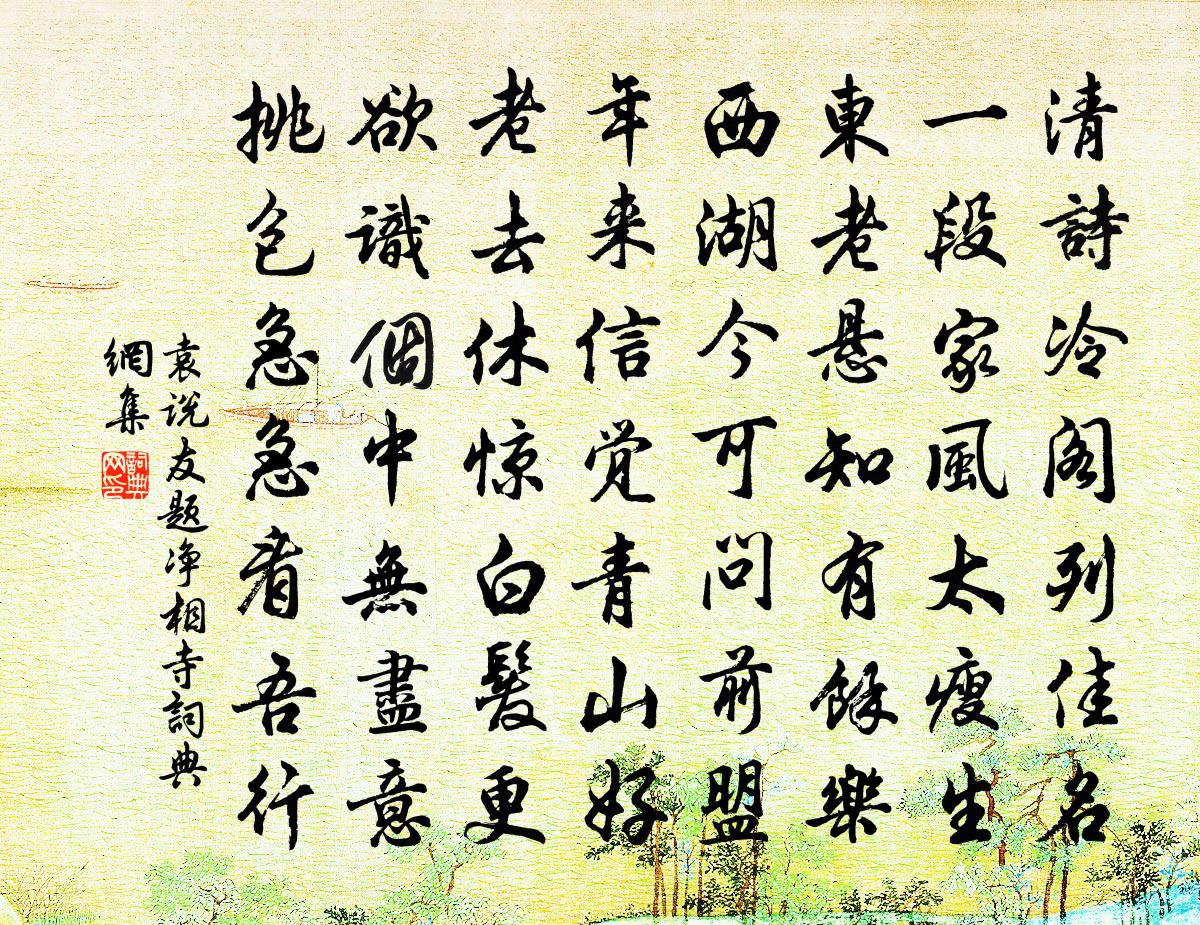 清詩冷阁列佳名
一段家風太瘦生
東老悬知有餘樂
西湖今可問前盟
年来信觉青山好
老去休惊白髮更
欲識個中無盡意
挑包急急看吾行
袁说友题净相寺詞典
網集
詞典网印